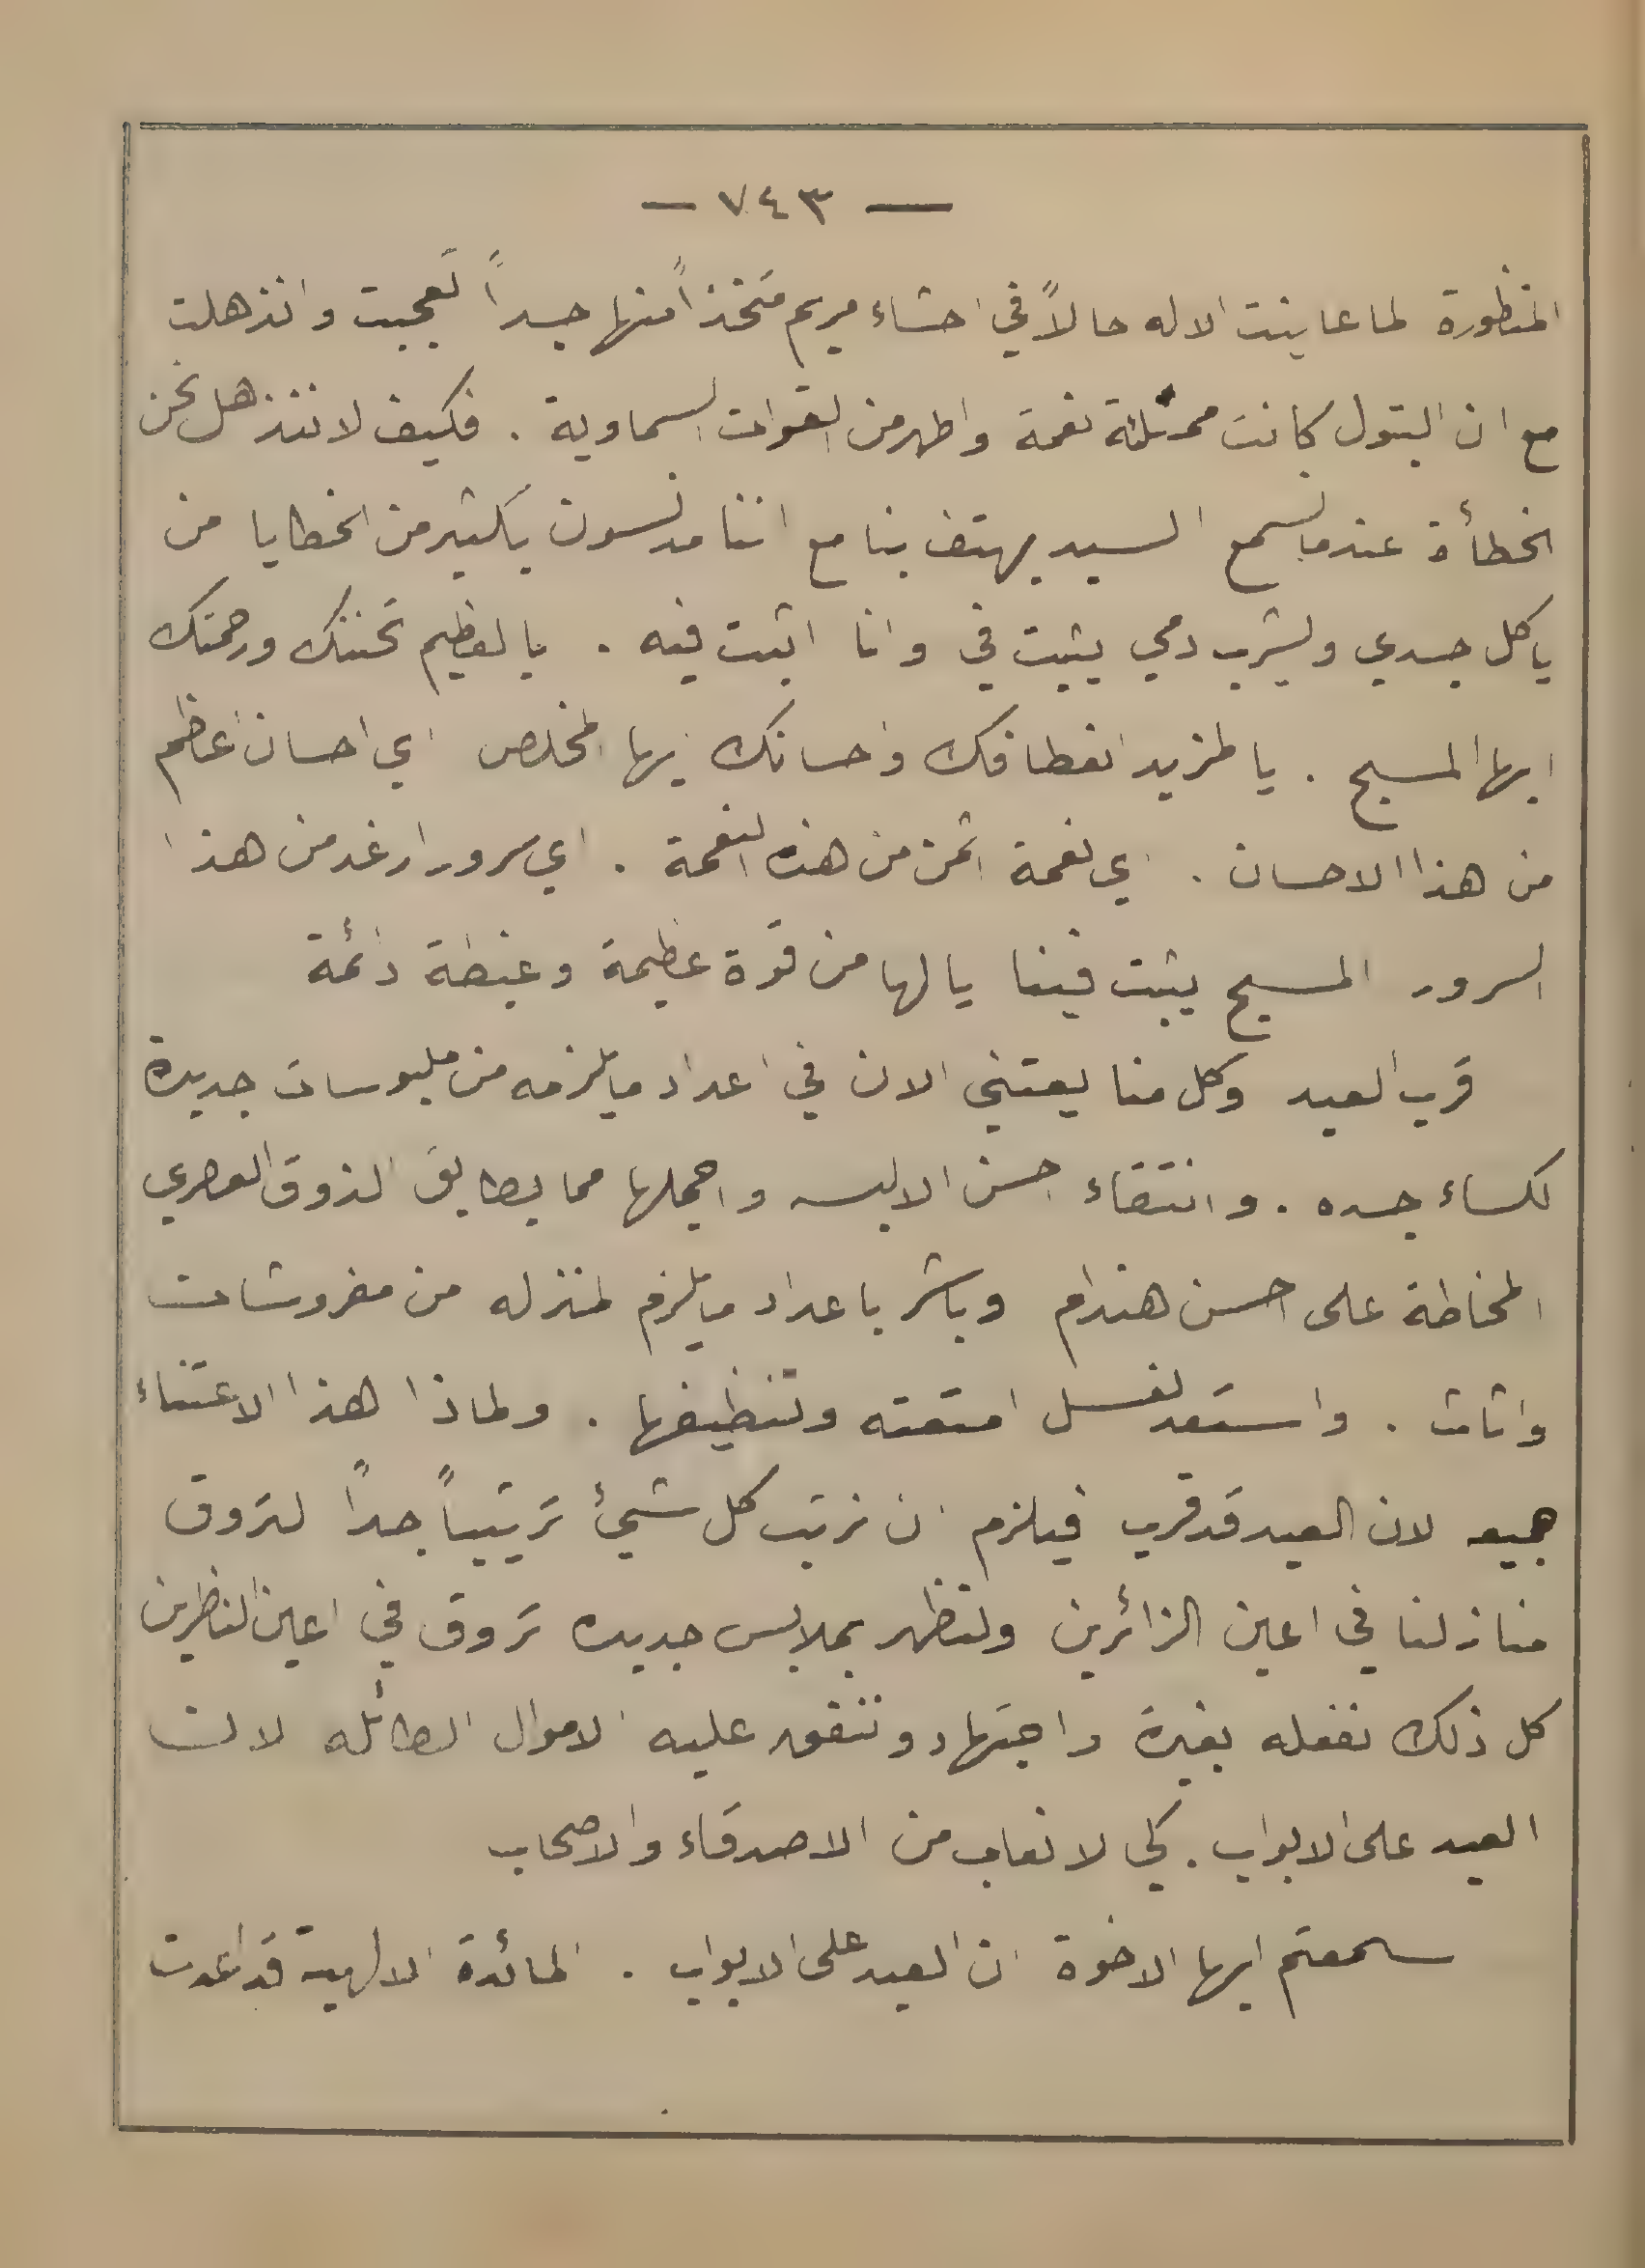 — ٧٤٣ —
المنظورة لما عاينت الاله حالاً في احشاء مريم متخذاً منها جسداً تعجبت وانذهلت
مع ان البتول كانت ممتلئة نعمة واطهر من القوات السماوية . فكيف لا ننذهل نحن
الخطأة عندما نسمع السيد يهتف بنا مع اننا مدنسون بكثير من الخطايا من
ياكل جسدي ويشرب دمي يثبت في وانا اثبت فيه . يا لعظيم تحننك ورحمتك
ايها المسيح . يا لمزيد انعطافك واحسانك ايها المخلص اي احسان اعظم
من هذا الاحسان . اي نعمة اثمن من هذه النعمة . اي سرور ارغد من هذا
السرور المسيح يثبت فينا يا لها من قوة عظيمة وغبطة دائمة
قرب العيد وكل منا يعتني الان في اعداد ما يلزمه من ملبوسات جديدة
لكساء جسده . وانتقاء احسن الالبسه واجملها مما يطابق الذوق العصري
المخاطة على احسن هندام وباشر باعداد ما يلزم لمنزله من مفروشات
واثاث . واستعد لغسل امتعته وتنظيفها . ولماذا هذا الاعتناء
جميعه لان العيد قد قرب فيلزم ان نرتب كل شيئ ترتيباً جداً لتروق
منازلنا في اعين الزائرين ولنظهر بملابس جديده تروق في اعين الناظرين
كل ذلك نفعله بغيرة واجتهاد وننفق عليه الاموال الطائله لان
العيد على الابواب . كي لا نعاب من الاصدقاء والاصحاب
سمعتم ايها الاخوة ان العيد على الابواب . المائدة الالهية قد اعدت